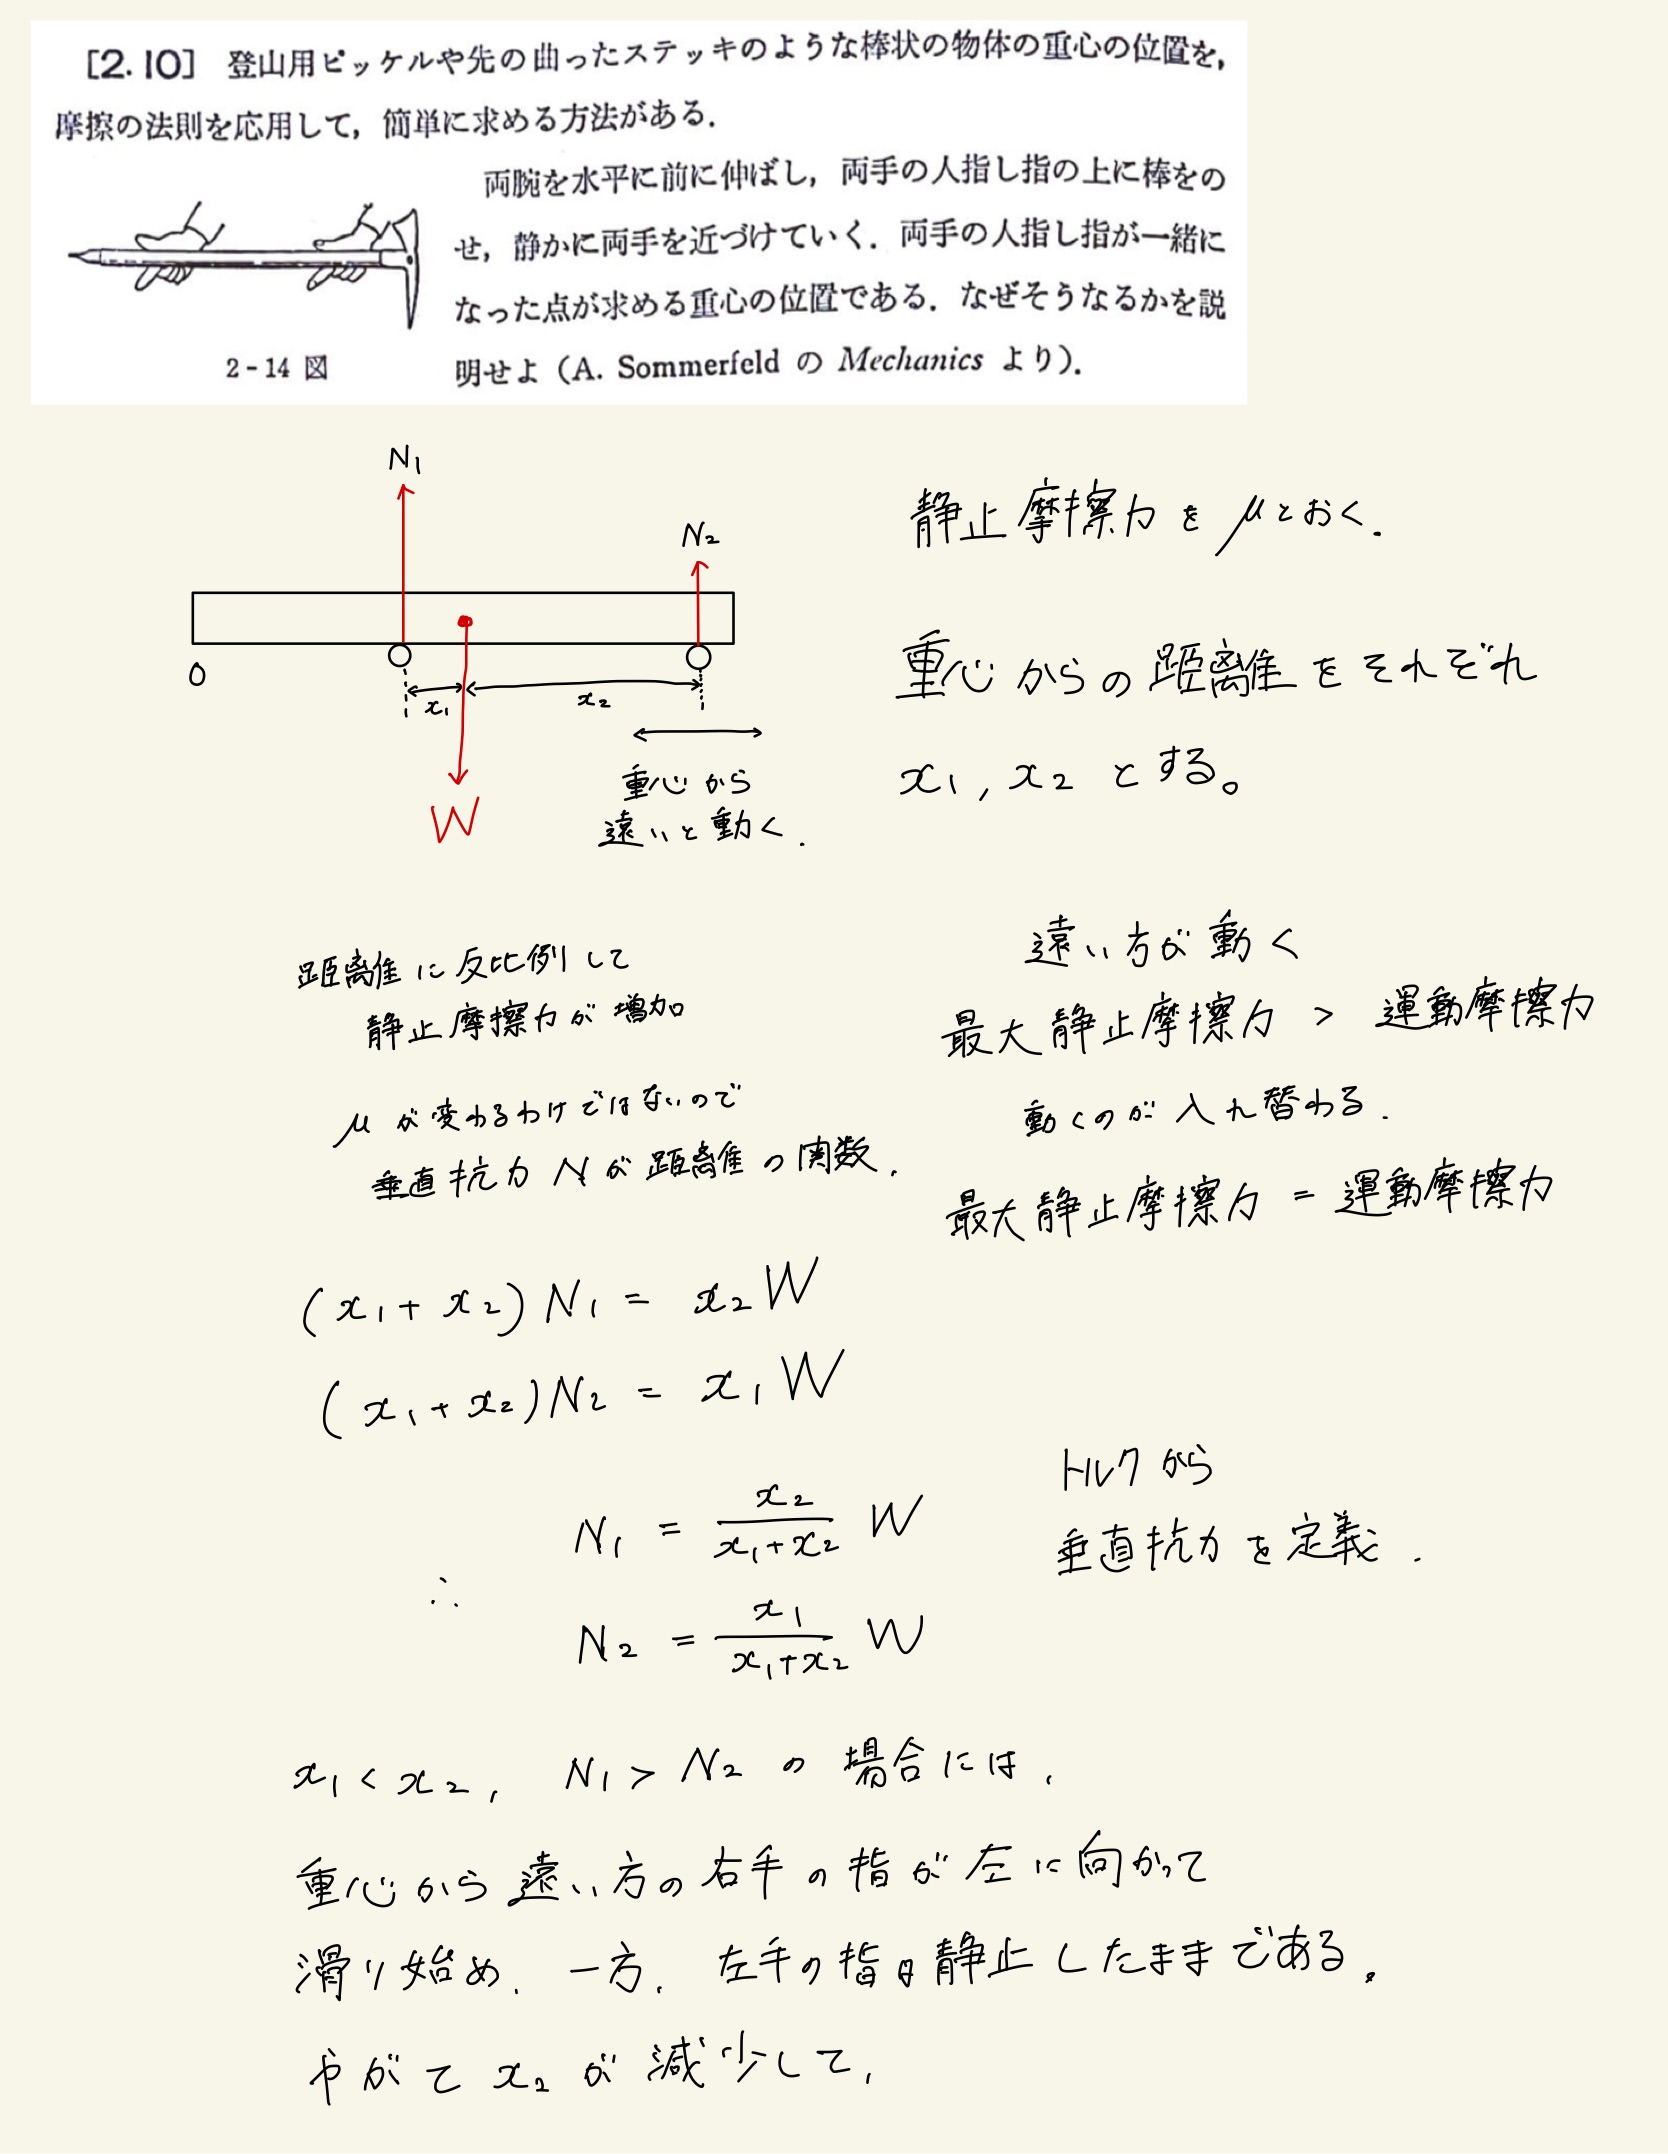 [2.10] 登山用ピッケルや先の曲ったステッキのような棒状の物体の重心の位置を,
摩擦の法則を応用して, 簡単に求める方法がある.
両腕を水平に前に伸ばし, 両手の人指し指の上に棒をの
せ, 静かに両手を近づけていく. 両手の人指し指が一緒に
なった点が求める重心の位置である. なぜそうなるかを説
明せよ (A. Sommerfeld の Mechanics より).
2-14 図
N₁
N₂
0
x₁
x₂
W
重心から
遠いと動く.
静止摩擦力を μとおく.
重心からの距離をそれぞれ
x₁, x₂ とする。
距離に反比例して
静止摩擦力が増加
μが変わるわけではないので
垂直抗力 Nが距離の関数.
遠い方が動く
最大静止摩擦力 > 運動摩擦力
動くのが入れ替わる.
最大静止摩擦力 = 運動摩擦力
(x₁+x₂)N₁ = x₂W
(x₁+x₂)N₂ = x₁W
∴ N₁ = x₂/(x₁+x₂) W
N₂ = x₁/(x₁+x₂) W
トルクから
垂直抗力を定義.
x₁<x₂, N₁>N₂ の場合には,
重心から遠い方の右手の指が左に向かって
滑り始め, 一方, 左手の指は静止したままである.
やがて x₂が減少して,